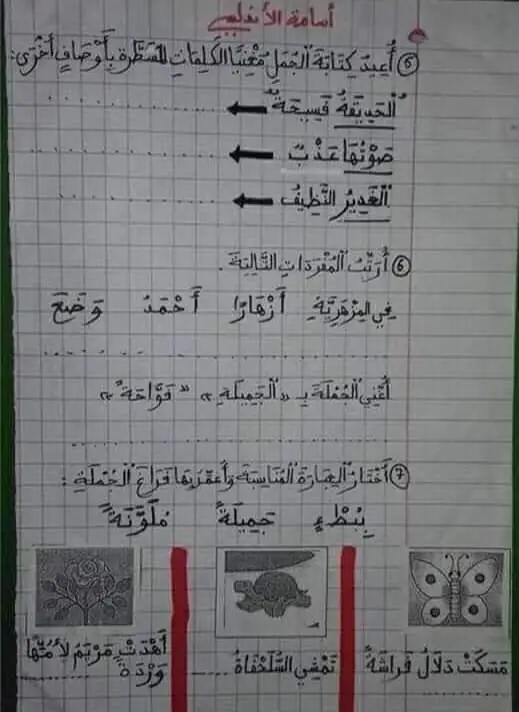 أسامة الأندلسي
⑤ أُعِيدُ كِتَابَةَ الْجُمَلِ مُغْنِيًا الْكَلِمَاتِ الْمُسَطَّرَةَ بِأَوْصَافٍ أُخْرَى:
الْحَدِيقَةُ فَسِيحَةٌ
صَوْتُهَا عَذْبٌ
الْغَدِيرُ النَّظِيفُ
⑥ أُرَتِّبُ الْمُفْرَدَاتِ التَّالِيَةَ.
فِي الْمِزْهَرِيَّةِ أَزْهَارًا أَحْمَدُ وَضَعَ
أُغْنِي الْجُمْلَةَ بِـ «الْجَمِيلَةِ» «فَوَّاحَةً»
⑦ أَخْتَارُ الْعِبَارَةَ الْمُنَاسِبَةَ وَأُعَمِّرُ بِهَا فَرَاغَ الْجُمْلَةِ:
بِبُطْءٍ جَمِيلَةً مُلَوَّنَةً
مَسَكَتْ دَلَالُ فَرَاشَةً
تَمْشِي السُّلَحْفَاةُ
أَهْدَتْ مَرْيَمُ لِأُمِّهَا
وَرْدَةً